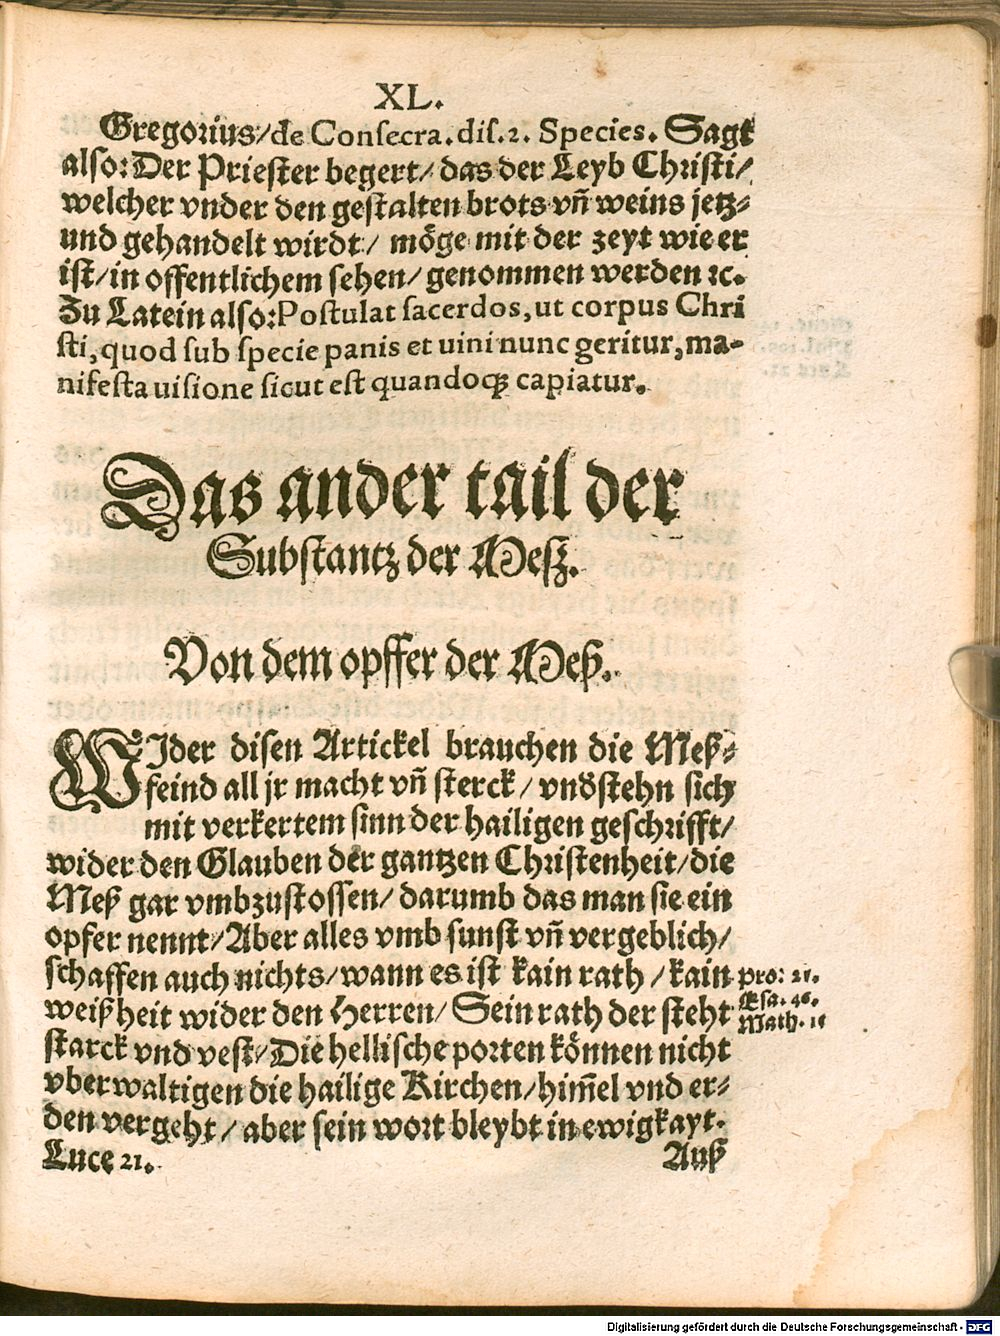 XL.
Gregorius/de Consecra. dis. 2. Species. Sagt
also: Der Priester begert/ das der Leyb Christi/
welcher vnder den gestalten brots vñ weins jetz-
und gehandelt wirdt/ möge mit der zeyt wie er
ist/in offentlichem sehen/ genommen werden ꝛc.
Zu Latein also: Postulat sacerdos, ut corpus Chri
sti, quod sub specie panis et uini nunc geritur, ma-
nifesta uisione sicut est quandoqꝫ capiatur.
Das ander tail der
Substantz der Mesz.
Von dem opffer der Meß.
WIder disen Artickel brauchen die Meß-
feind all jr macht vñ sterck/ vndstehn sich
mit verkertem sinn der hailigen geschrifft/
wider den Glauben der gantzen Christenheit/die
Meß gar vmbzustossen/ darumb das man sie ein
opfer nennt/Aber alles vmb sunst vñ vergeblich/
schaffen auch nichts/wann es ist kain rath/kain
pro: 21.
weißheit wider den Herren/ Sein rath der steht
Esa. 46.
Math. 16
starck vnd vest/Die hellische porten können nicht
vberwaltigen die hailige Kirchen/him̃el vnd er-
den vergeht/aber sein wort bleybt in ewigkayt.
Luce 21.
Auß
Digitalisierung gefördert durch die Deutsche Forschungsgemeinschaft - DFG